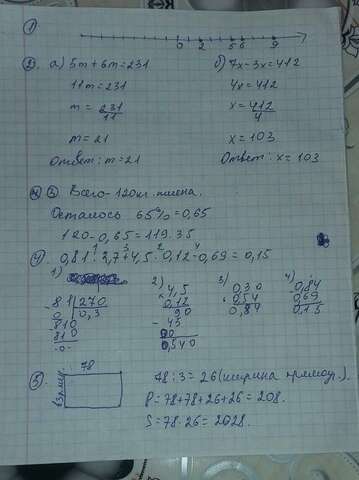 1
0 2 5 6 9
2. а) 5m + 6m = 231 б) 7x - 3x = 412
11m = 231 4x = 412
m = 231/11 x = 412/4
m = 21 x = 103
Ответ: m = 21 Ответ: x = 103
3 Всего - 120 кг. пшена.
Осталось 65% = 0,65
120 - 0,65 = 119.35
4. 0,81 : 2,7 + 4,5 · 0,12 - 0,69 = 0,15
1) 2) 3) 4)
81 270 4,5 0,30 0,84
0 0,3 0,12 0,54 0,69
810 90 0,84 0,15
810 45
0 00
0,540
5. 78 78 : 3 = 26 (ширина прямоуг.)
в 3 р. м P = 78 + 78 + 26 + 26 = 208.
S = 78 · 26 = 2028.